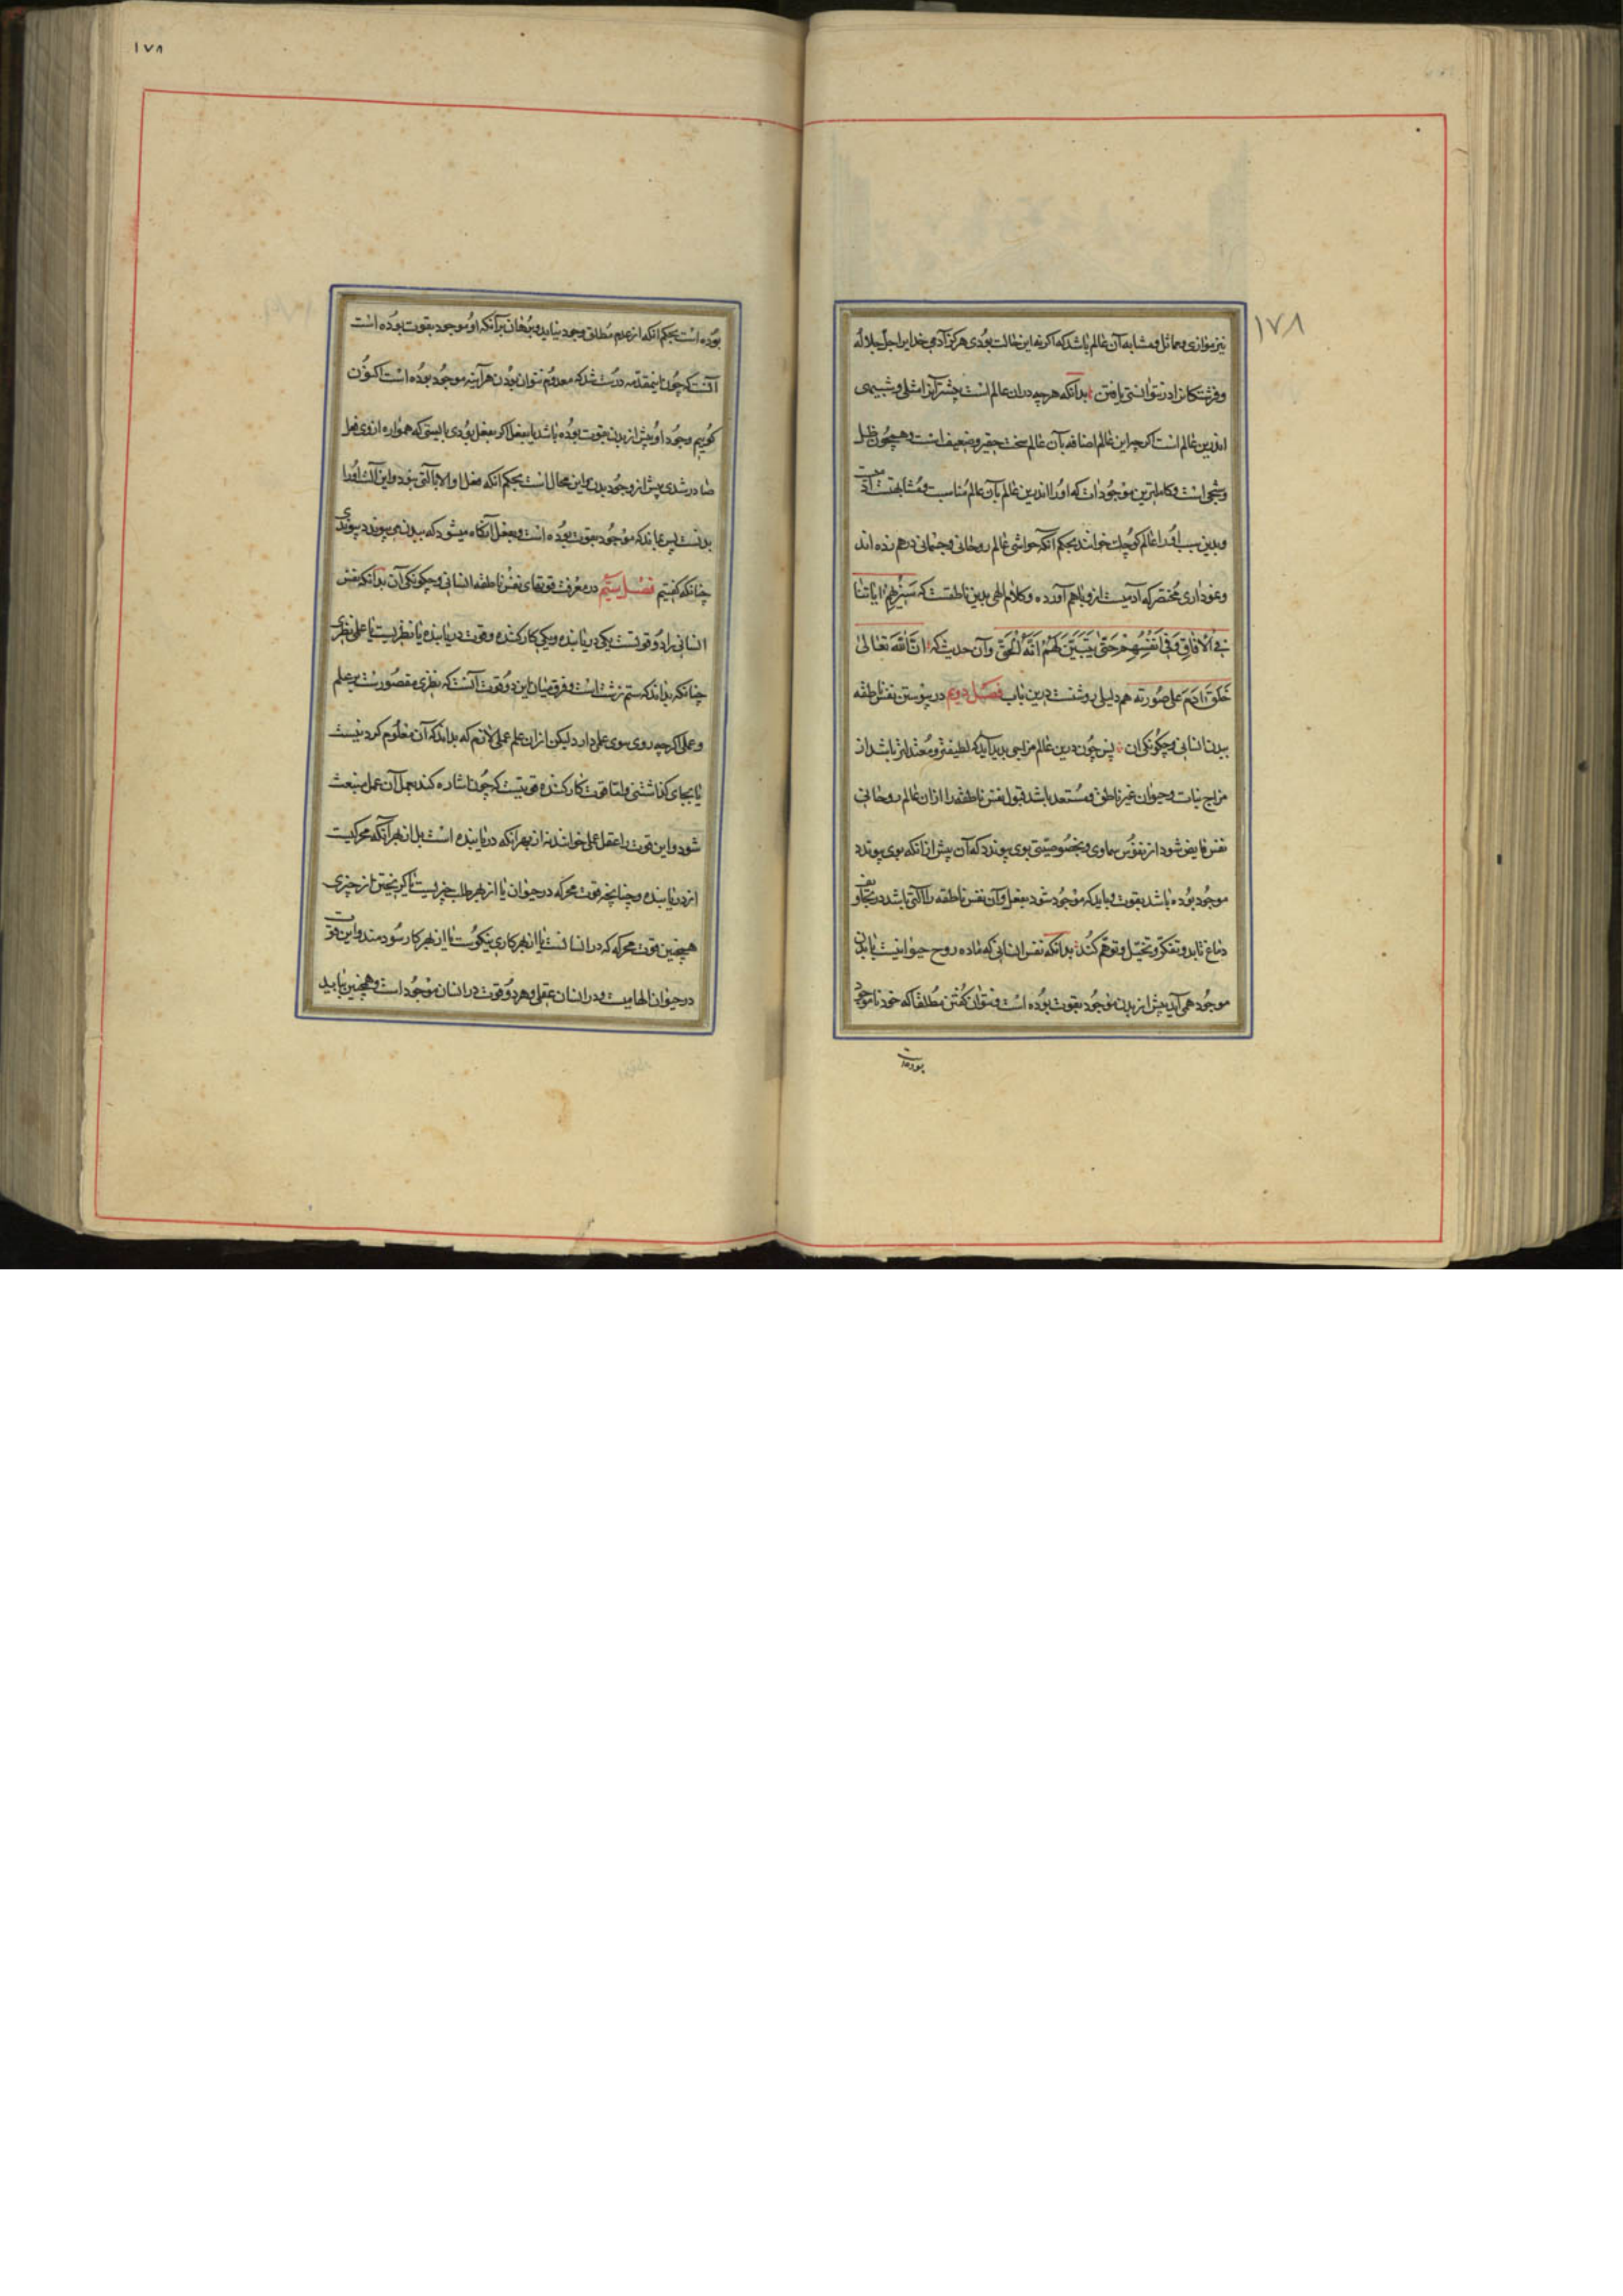 ۱۷۸
نیز موازی و مماثل و مشابه آن عالم باشد که اکر نه این حالت بودی هرکز آدمی خدایرا جل جلاله
و فرشتکانرا در نتوانستی یافتن بدانکه هرچه در ان عالم است چشم آنرا مثلی و شبیهی
اندرین عالم است اکرچه این عالم اضافه بآن عالم سخت حقیر و ضعیف است و همچون ظل
و شبحی است و کاملترین موجودات که او را اندرین عالم بآن عالم مناسبت و مشابهتست
و بدین سبب او را عالم کوچک خوانند بحکم آنکه حواشی عالم روحانی و جسمانی در هم زده اند
و نموداری مختصر که آدمیست ازو باهم آورده و کلام الهی بدین ناطقست که سَنُریهِمْ ایاتنا
فی الافاق وَ فی اَنفُسِهِمْ حَتّی یَتَبَیَّنَ لَهُمْ اَنَّهُ الْحَقُّ و آن حدیث که انّ الله تعالی
خَلَقَ ادَمَ علی صُورته هم دلیلی روشنست درین باب فصل دویم در پیوستن نفس ناطقه
ببدن انسانی و چکونکی ان پس چون درین عالم مزاجی پدید آید که لطیفتر و معتدلتر باشد از
مزاج نبات و حیوان غیر ناطق و مستعد باشد قبول نفس ناطقه را از ان عالم روحانی
نفس فایض شود از نفوس سماوی و بخصوصیتی بوی پیوندد که آن پیش از انکه بوی پیوندد
موجود بوده باشد بقوت و بباید که موجود شود بفعل و آن نفس ناطقه را آلتی باشد در
دماغ تا بدو تفکر و تخیل و توهم کند بدانکه نفس انسانی که ماده روح حیوانیست با بدن
موجود همی آید پیش از بدن موجود بقوت بوده است و نتوان کفتن مطلقا که خود ناموجود
بوده است
۱۷۸
بوده است بحکم انکه از عدم مطلق وجود نیاید و برهان برآنکه او موجود بقوت بوده است
آنست که چون این مقدمه درست شد که معدوم نتوان بودن هرآینه موجود بوده است اکنون
کوییم وجود او پیش از بدن بقوت بوده باشد یا بفعل اکر بفعل بودی بایستی که همواره از وی فعل
صادر شدی پیش از وجود بدن و این محال است بحکم انکه فعل او الا بآلتی نبود و این آلت او را
بدنست پس بماند که موجود بقوت بوده است و بفعل آنکاه میشود که ببدن می پیوندد
چنانکه کفتیم فصل سیّم در معرفت قوتهای نفس ناطقه انسانی و چکونکی آن بدانکه نفس
انسانی را دو قوتست یکی دریابنده و یکی کارکننده و قوت دریابنده یا نظریست یا عملی نظری
چنانکه بداند که ستم زشت است و فرق میان این دو قوت آنست که نظری مقصورست بر علم
و عملی اکرچه روی سوی عمل دارد لیکن از ان علم عملی لازم که بداند که آن معلوم کردنیست
یا بجای کذاشتنی و اما قوت کارکننده قوتیست که چون اشاره کند بعمل آن عمل منبعث
شود و این قوت را عقل عملی خوانند نه از بهر انکه دریابنده است بل از بهر آنکه محرکیست
از دریابنده و چنانچه قوت محرکه در حیوان یا از بهر طلب چیزیست یا کریختن از چیزی
همچنین قوت محرکه که در انسانست یا از بهر کاری نیکوست یا از بهر کار سودمند و این قوت
در حیوان الهامیست و در انسان عقلی و هر دو قوت در انسان موجود است و همچنین باید